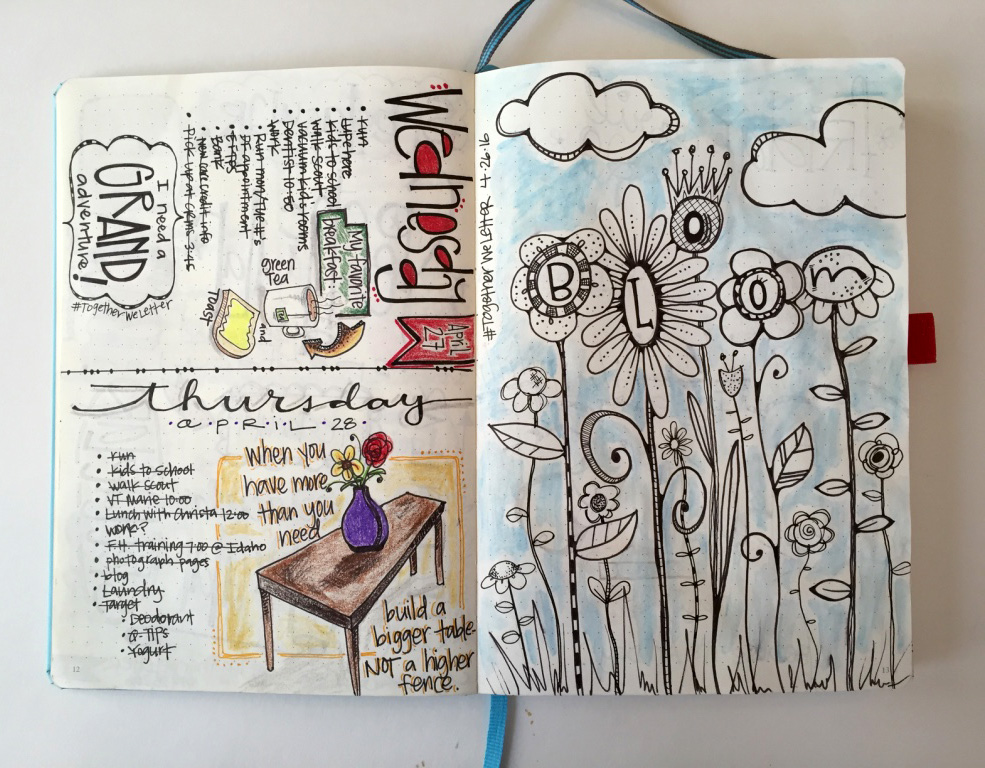 Wednesday
April
27
• Run
• kids to school
• walk Scout
• vacuum kids rooms
• Dentist 10:50
• work
• appointment
• Bank
• New care credit info
• Pick up at GRMS 3:45
My favorite
breakfast:
green
Tea
and
Toast
I need a
GRAND
adventure!
#TogetherWeLetter
thursday
a·p·r·i·L· 28·
• Run
• kids to school
• walk Scout
• VT Marie 10:00
• Lunch with Christa 12:00
• work?
• F.H. training 7:00 @ Idaho
• photograph pages
• blog
• Laundry
• Target
• Deodorant
• Q-TIPS
• Yogurt
when you
have more
than you
need
build a
bigger table-
NOT a higher
fence.
12
#TogetherWeLetter 4-26-16
BLOOM